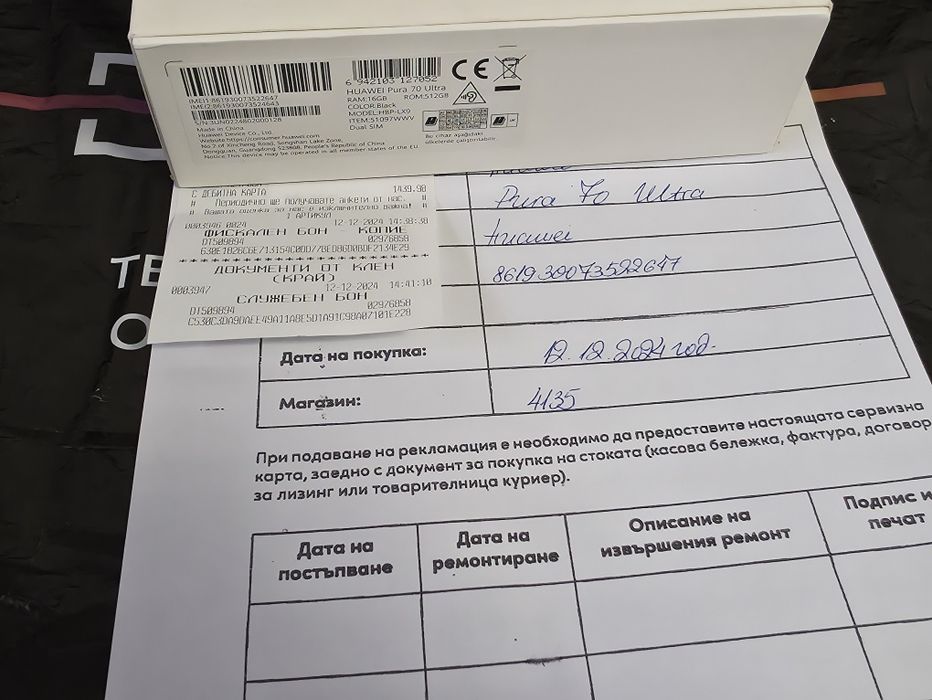 6 942103 127052
HUAWEI Pura 70 Ultra
RAM:16GB ROM:512GB
COLOR:Black
MODEL:HBP-LX9
ITEM:51097WWV
Dual SIM
IMEI1:861930073522647
IMEI2:861930073524643
S/N:3UN0224802000128
Made in China
Huawei Device Co., Ltd.
Website:https://consumer.huawei.com
No.2 of Xincheng Road, Songshan Lake Zone,
Dongguan, Guangdong 523808, People's Republic of China
Notice:This device may be operated in all member states of the EU.
CE
Bu cihaz aşağıdaki
ülkelerde çalışabilir:
С ДЕБИТНА КАРТА 1439.90
# Периодично ще получавате анкети от нас. #
# Вашата оценка за нас е изключително важна! #
1 АРТИКУЛ
0003946 0024 12-12-2024 14:38:38
ФИСКАЛЕН БОН КОПИЕ
DT509894 02976858
630E1826C6E713154C0DD77BED86D0BDE2134E29
ДОКУМЕНТИ ОТ КЛЕН
(КРАЙ)
0003947 12-12-2024 14:41:10
СЛУЖЕБЕН БОН
DT509894 02976858
C530C3DA9DAEE49A11A8E5D1A91C98A07101E228
Pura 70 Ultra
Huawei
861930073522647
Дата на покупка: 12.12.2024 год.
Магазин: 4135
При подаване на рекламация е необходимо да предоставите настоящата сервизна
карта, заедно с документ за покупка на стоката (касова бележка, фактура, договор
за лизинг или товарителница куриер).
Дата на
постъпване
Дата на
ремонтиране
Описание на
извършения ремонт
Подпис и
печат